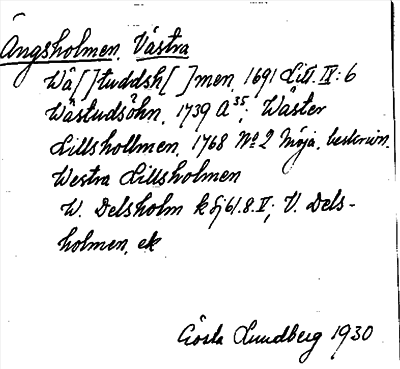 Ängsholmen, Västra
Wä[]tuddsh[]men, 1691 Litt. IX:6
Wästudsöhn, 1739 A³⁵; Wäster
Lillshollmen, 1768 No 2 Möja, beskrivn.
Westra Lillsholmen
W. Delsholm k Sj 61.8.V; V. Dels-
holmen, ek
Gösta Lundberg 1930